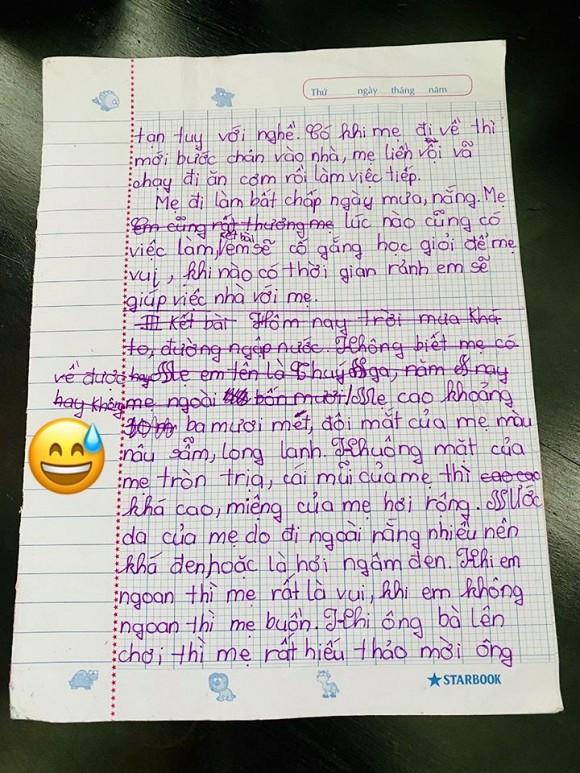 Thứ ngày tháng năm
tan tuy với nghề. Có khi mẹ đi về thì
mới bước chân vào nhà, mẹ liền vỗi vã
chay đi ăn cơm rồi làm việc tiếp.
Mẹ đi làm bất chấp ngày mưa, nắng. Mẹ
Em cũng rất thương mẹ lúc nào cũng có
kết bài
việc làm, em sẽ cố gắng học giỏi để mẹ
vui, khi nào có thời gian rảnh em sẽ
giúp việc nhà với mẹ.
III Kết bài Hôm nay trời mưa khá
to, đường ngập nước. Không biết mẹ có
về được hay Mẹ em tên là Thuý Nga, năm nay
hay không mẹ ngoài bốn mươi Mẹ cao khoảng
ba mươi mét, đôi mắt của mẹ màu
nâu sẫm, long lanh. Khuông mặt của
mẹ tròn trịa, cái mũi của mẹ thì cao cao
khá cao, miệng của mẹ hơi rộng. Nước
da của mẹ do đi ngoài nắng nhiều nên
khá đen, hoặc là hơi ngâm đen. Khi em
ngoan thì mẹ rất là vui, khi em không
ngoan thì mẹ buồn. Khi ông bà lên
chơi thì mẹ rất hiếu thảo mời ông
STARBOOK